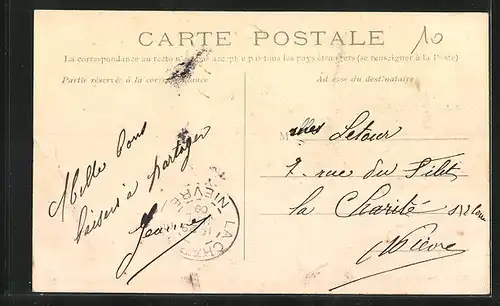 CARTE POSTALE
10
La correspondance au recto n'est pas acceptée par tous les pays étrangers (se renseigner à la Poste)
Partie réservée à la correspondance
Adresse du destinataire
Mille bons
baisers à partager
Jeanne
LA CHARITÉ
NIEVRE
Melles Letour
7 rue du Filet
la Charité s/Loire
Nièvre